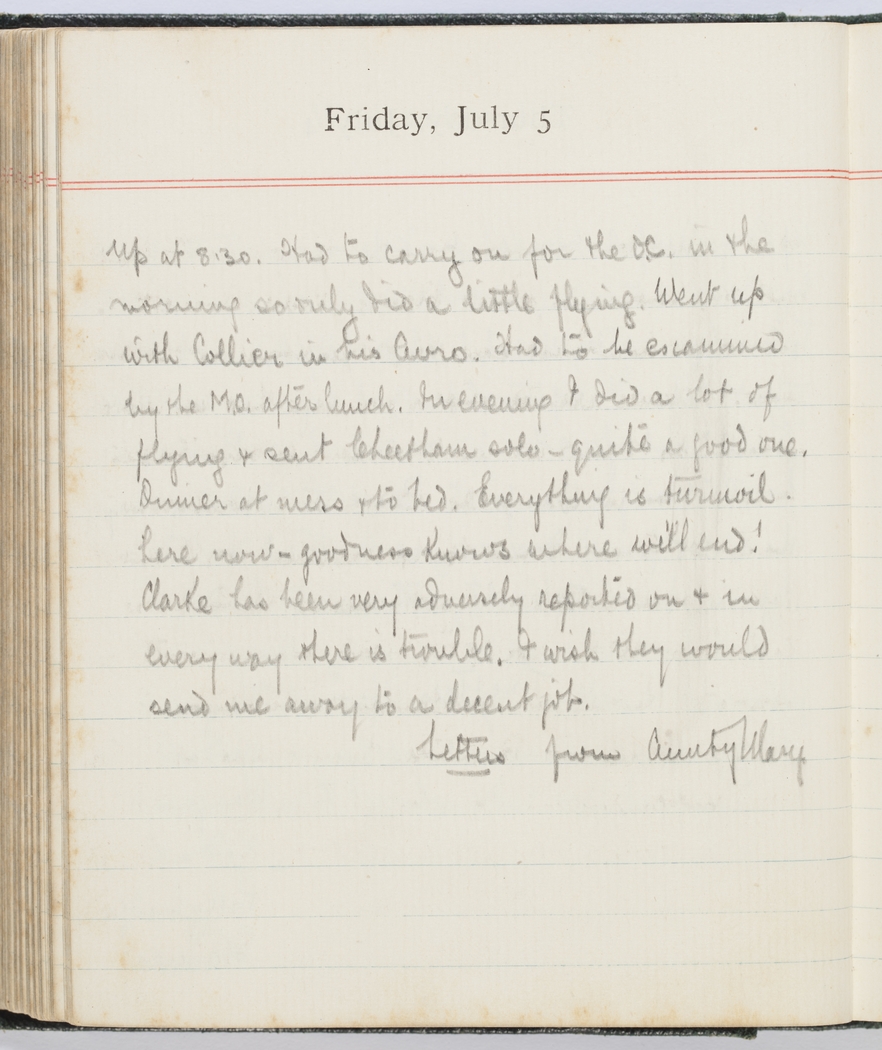 Friday, July 5
Up at 8.30. Had to carry on for the O.C. in the
morning so only did a little flying. Went up
with Collier in his Avro. Had to be examined
by the M.O. after lunch. In evening I did a lot of
flying & sent Cheetham solo - quite a good one.
Dinner at mess & to bed. Everything is turmoil.
here now - goodness knows where we'll end!
Clarke has been very adversely reported on & in
every way there is trouble. I wish they would
send me away to a decent job.
Letters from Aunty Mary